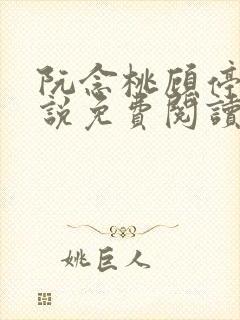 阮念桃顾停
說免費閱讀
姚巨人